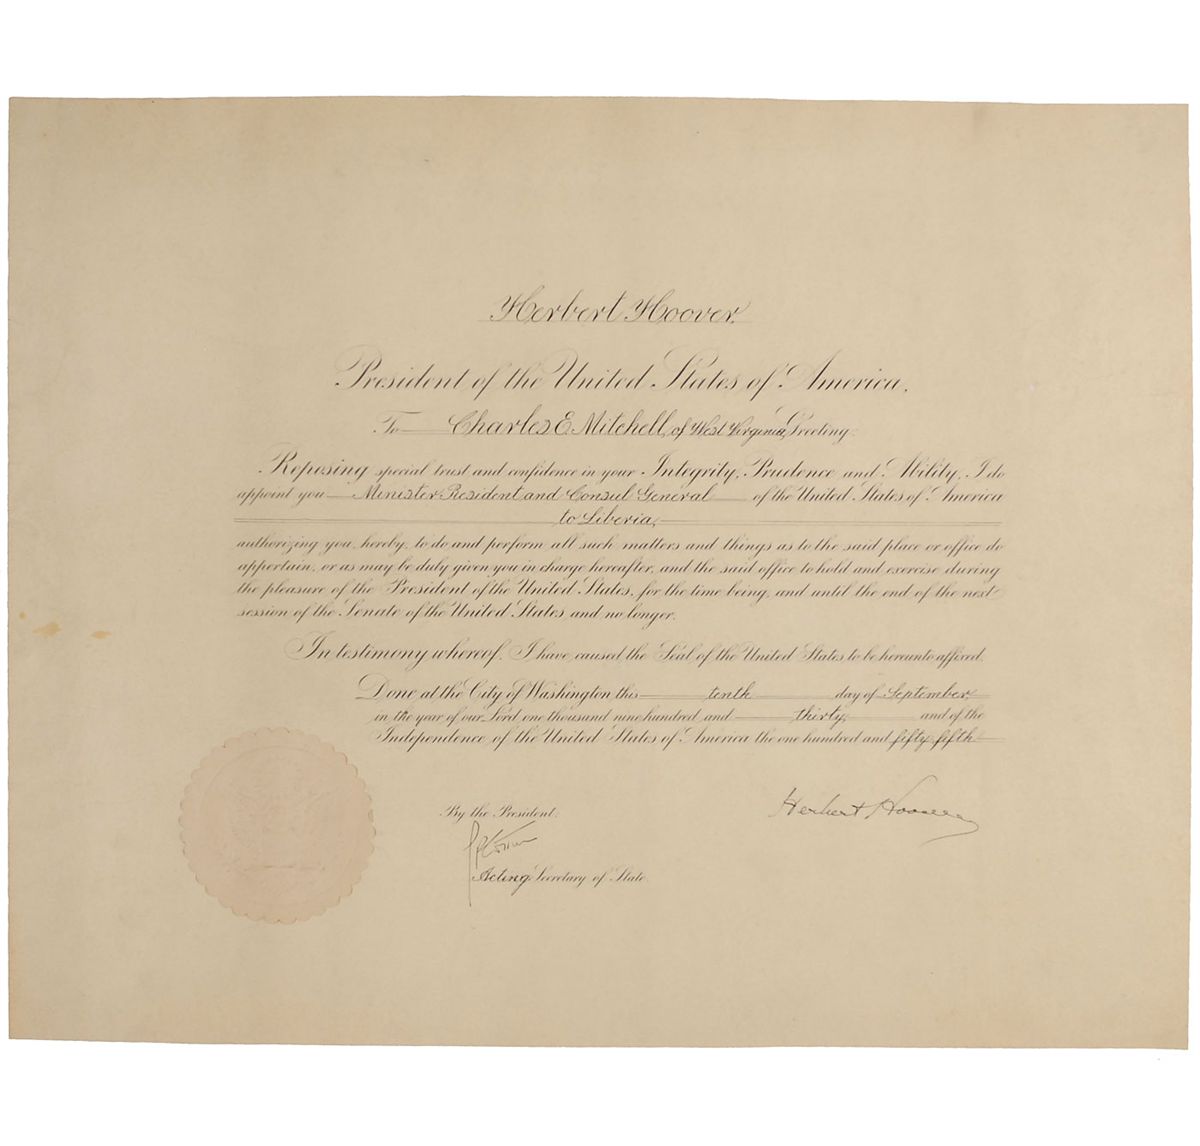 Herbert Hoover.
President of the United States of America.
To Charles E Mitchell, of West Virginia, Greeting:
Reposing special trust and confidence in your Integrity, Prudence and Ability, I do
appoint you Minister Resident and Consul General of the United States of America
to Liberia,
authorizing you, hereby, to do and perform all such matters and things as to the said place or office do
appertain, or as may be duly given you in charge hereafter, and the said office to hold and exercise during
the pleasure of the President of the United States, for the time being, and until the end of the next
session of the Senate of the United States and no longer.
In testimony whereof, I have caused the Seal of the United States to be hereunto affixed.
Done at the City of Washington this tenth day of September,
in the year of our Lord one thousand nine hundred and thirty, and of the
Independence of the United States of America the one hundred and fifty fifth
Herbert Hoover
By the President:
Acting Secretary of State.